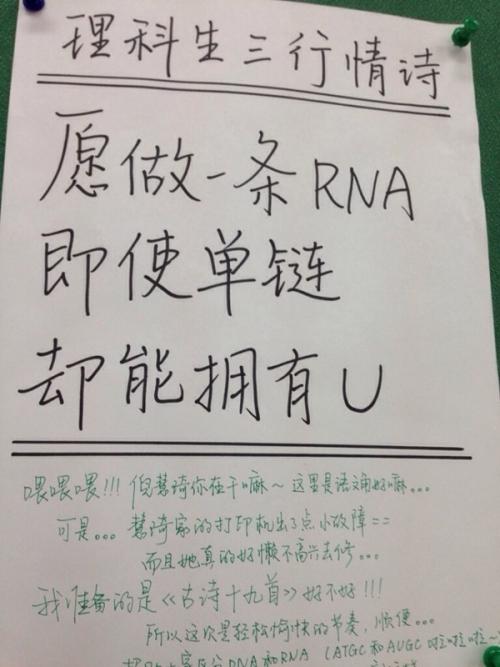 理科生三行情诗
愿做一条RNA
即使单链
却能拥有U
喂喂喂!!! 倪慧琦你在干嘛~ 这里是语文角好嘛...
可是... 慧琦家的打印机出了点小故障==
而且她真的好懒不高兴去修...
我准备的是《古诗十九首》好不好!!!
所以这次是轻松愉快的节奏, 顺便...
DNA和RNA (ATGC和AUGC 啦啦啦~